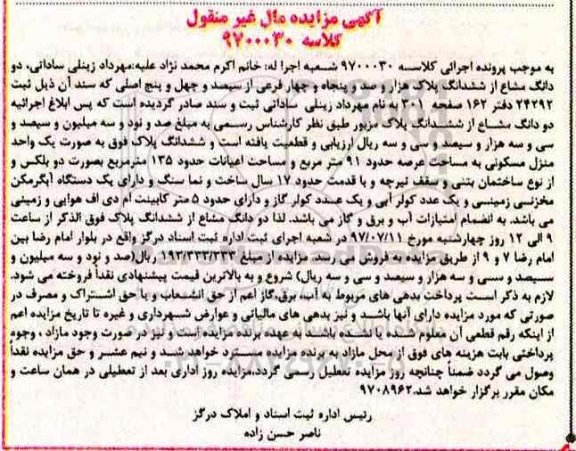 آگهی مزایده مال غیر منقول
کلاسه ۹۷۰۰۰۳۰
به موجب پرونده اجرائی کلاسه ۹۷۰۰۰۳۰ شعبه اجرا له: خانم اکرم محمد نژاد علیه:مهرداد زینلی ساداتی، دو
دانگ مشاع از ششدانگ پلاک هزار و صد و پنجاه و چهار فرعی از سیصد و چهل و پنج اصلی که سند آن ذیل ثبت
۲۴۲۹۲ دفتر ۱۶۲ صفحه ۳۰۱ به نام مهرداد زینلی ساداتی ثبت و سند صادر گردیده است که پس ابلاغ اجرائیه
دو دانگ مشاع از ششدانگ پلاک مزبور طبق نظر کارشناس رسمی به مبلغ صد و نود و سه میلیون و سیصد و
سی و سه هزار و سیصد و سی و سه ریال ارزیابی و قطعیت یافته است و ششدانگ پلاک فوق به صورت یک واحد
منزل مسکونی به مساحت عرصه حدود ۹۱ متر مربع و مساحت اعیانات حدود ۱۳۵ مترمربع بصورت دوبلکس و
از نوع ساختمان بتنی و سقف تیرچه و با قدمت حدود ۱۷ سال ساخت و نما سنگ و دارای یک دستگاه آبگرمکن
مخزنی زمینی و یک عدد کولر آبی و یک عدد کولر گاز و دارای حدود ۵ متر کابینت ام دی اف هوایی و زمینی
می باشد. به انضمام امتیازات آب و برق و گاز می باشد. لذا دو دانگ مشاع از ششدانگ پلاک فوق الذکر از ساعت
۹ الی ۱۲ روز چهارشنبه مورخ ۹۷/۰۷/۱۱ در شعبه اجرای ثبت اداره ثبت اسناد درگز واقع در بلوار امام رضا بین
امام رضا ۷ و ۹ از طریق مزایده به فروش می رسد. مزایده از مبلغ ۱۹۳/۳۳۳/۳۳۳ ریال(صد و نود و سه میلیون و
سیصد و سی و سه هزار و سیصد و سی و سه ریال) شروع و به بالاترین قیمت پیشنهادی نقداً فروخته می شود.
لازم به ذکر است پرداخت بدهی های مربوط به آب، برق،گاز اعم از حق انشعاب و یا حق اشتراک و مصرف در
صورتی که مورد مزایده دارای آنها باشد و نیز بدهی های مالیاتی و عوارض شهرداری و غیره تا تاریخ مزایده اعم
از اینکه رقم قطعی آن معلوم شده یا نشده باشد به عهده برنده مزایده است و نیز در صورت وجود مازاد ، وجوه
پرداختی بابت هزینه های فوق از محل مازاد به برنده مزایده مسترد خواهد شد و نیم عشر و حق مزایده نقداً
وصول می گردد ضمناً چنانچه روز مزایده تعطیل رسمی گردد،مزایده روز اداری بعد از تعطیلی در همان ساعت و
مکان مقرر برگزار خواهد شد.۹۷۰۸۹۶۲
رئیس اداره ثبت اسناد و املاک درگز
ناصر حسن زاده